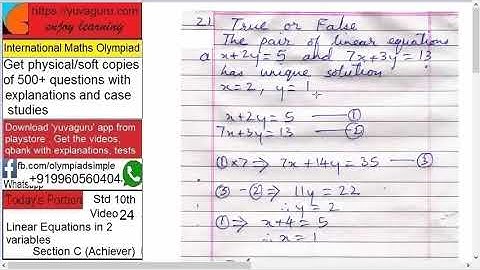 https://yuvaguru.com
enjoy learning
International Maths Olympiad
Get physical/soft copies
of 500+ questions with
explanations and case
studies
Download 'yuvaguru' app from
playstore Get the videos,
qbank with explanations, tests
fb.com/olympiadsimple
Whatsapp
+919960560404
Today's Portion
Std 10th
Video 24
Linear Equations in 2
variables
Section C (Achiever)
21 True or False
The pair of linear equations
a x+2y=5 and 7x+3y=13
has unique solution
x=2, y=1
x+2y=5 — ①
7x+3y=13 — ②
①×7⇒ 7x+14y=35 — ③
③-②⇒ 11y=22
∴y=2
①⇒ x+4=5
∴x=1